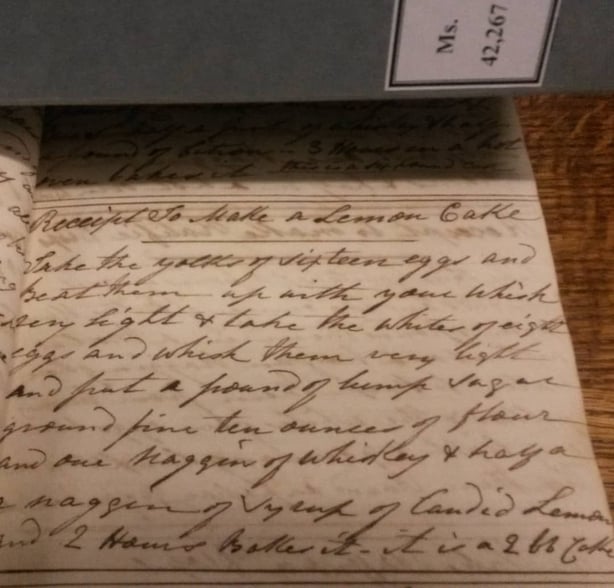 Ms.
42,267
half a pint of whiskey & half
pound of 3 Hours in a hot
oven bakes it this is a six pound
Receipt To Make a Lemon Cake
Take the yolks of sixteen eggs and
beat them up with your whisk
very light & take the whites of eight
eggs and whisk them very light
and put a pound of lump sugar
ground fine ten ounces of flour
and one naggin of whiskey & half a
naggin of Syrup of Candid Lemon
and 2 Hours Bakes it - it is a 2 lb Cake